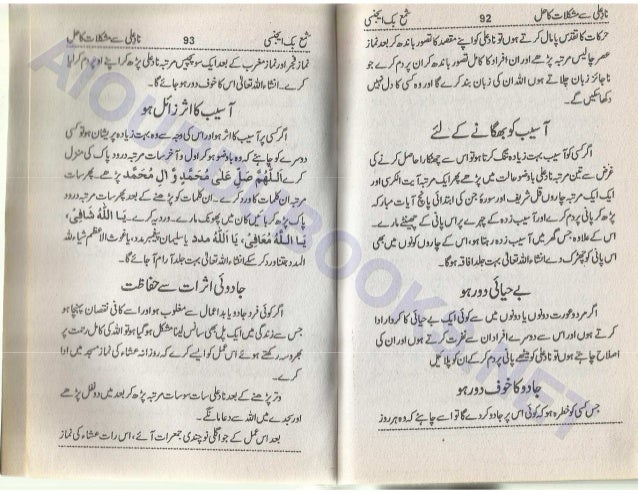 نادعلی سے مشکلات کا حل 92 شمع بک ایجنسی
حرکات کا تقدس پامال کرتے ہوں تو نادعلی کو اپنے مقصد کا تصور باندھ کر بعد نماز
عصر چالیس مرتبہ پڑھے اور ان افراد کا کامل تصور باندھ کر ان پر دم کرے جو
ناجائز زبان چلاتے ہوں اللہ ان کی زبان بند کرے گا اور وہ کسی کا دل نہیں
دکھا سکیں گے۔
آسیب کو بھگانے کے لئے
اگر کسی کو آسیب بہت زیادہ تنگ کرتا ہو تو اس سے چھٹکارا حاصل کرنے کی
غرض سے تین مرتبہ نادعلی باوضو حالت میں پڑھے پھر ایک مرتبہ آیت الکرسی اور
ایک ایک مرتبہ چاروں قل شریف اور سورۃ جن کی ابتدائی پانچ آیات مبارکہ
پڑھ کر پانی پر دم کرے اور آسیب زدہ کے چہرے پر اس پانی کے چھینٹے مارے۔
اس کے علاوہ جس گھر میں آسیب زدہ رہتا ہو، اس کے چاروں کونوں میں بھی
اس پانی کو چھڑک دے انشاءاللہ تعالیٰ بہت جلد افاقہ ہوگا۔
بے حیائی دور ہو
اگر مرد و عورت دونوں یا دونوں میں سے کوئی ایک بے حیائی کا کردار ادا
کرتے ہوں اور اس سے دوسرے افراد ان سے نفرت کرتے ہوں اور ان کی
اصلاح چاہتے ہوں تو نادعلی کو میٹھے پانی پر دم کر کے ان کو پلائیں
جادو کا خوف دور ہو
جس کسی کو خطرہ ہو کہ کوئی اس پر جادو کر دے گا تو اسے چاہئے کہ وہ ہر روز
نادعلی سے مشکلات کا حل 93 شمع بک ایجنسی
نماز فجر اور نماز مغرب کے بعد ایک سو پچیس مرتبہ نادعلی پڑھ کر اپنے اوپر دم کر لیا
کرے۔ انشاءاللہ تعالیٰ اس کا خوف دور ہو جائے گا۔
آسیب کا اثر زائل ہو
اگر کسی پر آسیب کا اثر ہو اور اس کی وجہ سے وہ بہت زیادہ پریشان ہو تو کسی
دوسرے کو چاہئے کہ وہ باوضو ہو کر اول و آخر سات مرتبہ درود پاک کی منزل
کرے اَللّٰهُمَّ صَلِّ عَلٰی مُحَمَّدٍ وَّ اٰلِ مُحَمَّد پڑھے۔ پھر سات
مرتبہ ان کلمات کا ورد کرے۔ ان کلمات کو پڑھنے کے بعد پھر سات مرتبہ درود
پاک پڑھ کر بائیں کان میں پھونک مارے۔ ورد یہ کرے۔ یَا اَللّٰهُ شَافِیْ،
یَا اَللّٰهُ مُعَافِیْ، یَا اَللّٰهُ مدد یا سلیمان پیغمبر مدد، یا غوث الاعظم شیاءللہ
المدد جتنا ورد کر سکے انشاءاللہ تعالیٰ بہت جلد آرام آ جائے گا۔
جادوئی اثرات سے حفاظت
اگر کوئی فرد جادو یا بداعمال سے مغلوب ہو اور اسے کافی نقصان پہنچا ہو
جس سے زندگی میں ایک پل بھی سانس لینا مشکل ہو گیا ہو تو اللہ کی کامل رحمت پر
بھروسہ رکھتے ہوئے اس عمل کو ایسے کرے کہ روزانہ عشاء کی نماز مسجد میں ادا
کرے۔
وتر پڑھنے کے بعد نادعلی سات سو سات مرتبہ پڑھ کر بعد میں دو نفل پڑھے
اور سجدے میں اللہ سے دعا مانگے۔
بعد اس عمل کے جو اگلی نو چندی جمعرات آئے، اس رات عشاء کی نماز